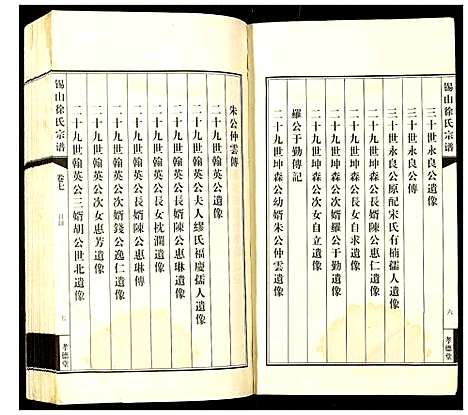 錫山徐氏宗譜
三十世永良公遺像
三十世永良公傳
三十世永良公原配宋氏有楠孺人遺像
二十九世坤森公長婿陳公惠仁遺像
二十九世坤森公長女自求遺像
二十九世坤森公次婿羅公于勤遺像
羅公于勤傳記
二十九世坤森公次女自立遺像
二十九世坤森公幼婿朱公仲雲遺像
六
孝德堂
朱公仲雲傳
二十九世翰英公遺像
二十九世翰英公夫人繆氏福慶孺人遺像
二十九世翰英公長婿陳公惠琳遺像
二十九世翰英公長婿陳公惠琳傳
二十九世翰英公長女枕瀾遺像
二十九世翰英公次婿錢公逸仁遺像
二十九世翰英公次女惠芳遺像
二十九世翰英公三婿胡公世北遺像
錫山徐氏宗譜
卷七
目錄
七
孝德堂